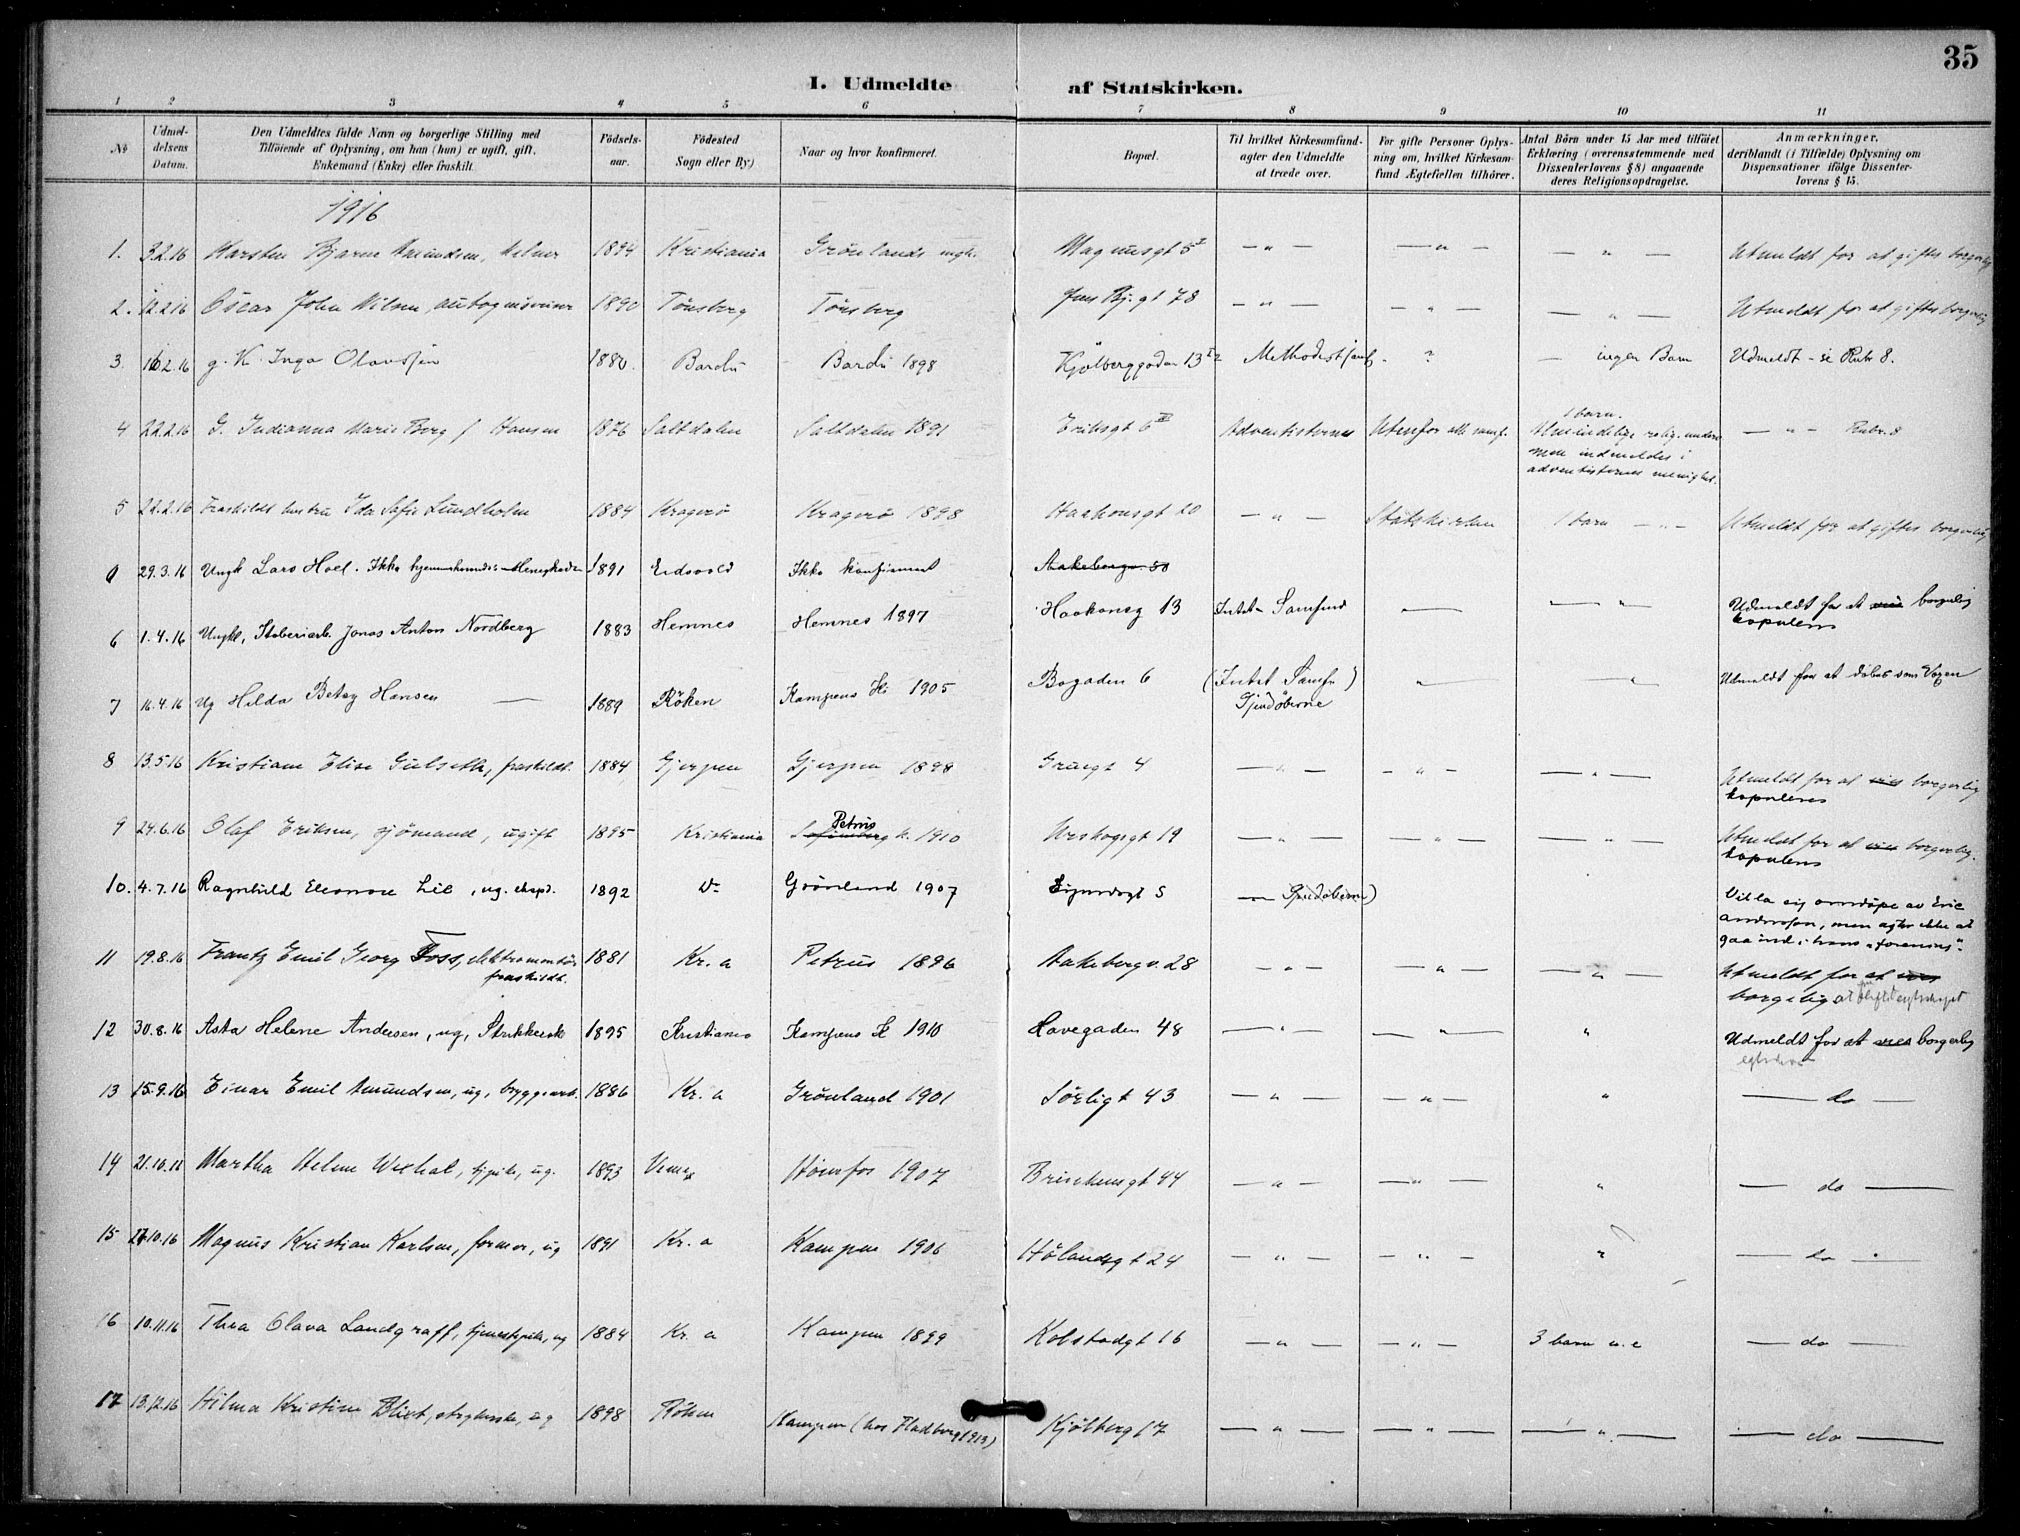 35
I. Udmeldte af Statskirken.
1 2 3 4 5 6 7 8 9 10 11
No
Udmeldelsens Datum.
Den Udmeldtes fulde Navn og borgerlige Stilling med
Tilføiende af Oplysning, om han (hun) er ugift, gift,
Enkemand (Enke) eller fraskilt.
Fødselsaar.
Fødested
Sogn eller By)
Naar og hvor konfirmeret.
Bopæl.
Til hvilket Kirkesamfund
agter den Udmeldte
at træde over.
For gifte Personer Oplysning om, hvilket Kirkesamfund Ægtefællen tilhører.
Antal Børn under 15 Aar med tilføiet
Erklæring (overensstemmende med
Dissenterlovens § 8) angaaende
deres Religionsopdragelse.
Anmærkninger,
deriblandt (i Tilfælde) Oplysning om
Dispensationer ifølge Dissenterlovens § 15.
1916
1. 3.2.16 Karsten Bjarne Amundsen, 1894 Kristiania Grønlands Magnusgt 5 I — " — — " — — " — Utmeldt for at giftes borgerlig
2. 12.2.16 Oscar John Nilsen, 1890 Tønsberg Tønsberg Jens Bj. gt 78 — " — — " — — " — Utmeldt for at giftes borgerlig
3 16.2.16 g. K. Inga Olavssen 1880 Bardu Bardu 1898 Kjølberggaden 13 Methodistsamf. " — ingen Barn Udmeldt – se Rubr 8.
4 22.2.16 G. Indianna Marie Borg f Hansen 1876 Saltdalen Saltdalen 1891 Eriksgt 6 Adventisterne Utenfor alle samf. 1 barn.
men indmeldes i
adventisternes menighet.
— " — Rubr. 8
5 22.2.16 Fraskildt hustru Ida Sofie Lundholm 1884 Kragerø Kragerø 1898 Haakonsgt 20 — " — Statskirken 1 barn — " — Utmeldt for at giftes borgerlig
6 29.3.16 Ungk Lars Hoel. Ikke hjemmehørende i Menigheden 1891 Eidsvold Ikke konfirmert Aakebergv. 50
6 1.4.16 Ungk, Støberiarb. Jonas Anton Nordberg 1883 Hemnes Hemnes 1897 Haakonsg 13 Intet Samfund — — " Udmeldt for at vies borgerlig
kopuleres
7 16.4.16 Ug Hilda Betzy Hansen — 1889 Røken Kampens K. 1905 Bogaden 6 (Intet Samfu)
Gjendøberne
" — — " Udmeldt for at døbes som Voxen
8 13.5.16 Kristiane Elise Gulseth, fraskildt. 1884 Gjerpen Gjerpen 1898 Gruegt 4 — " — — " — — " — Utmeldt for at vies borgerlig
kopuleres
9 24.6.16 Olaf Eriksen, sjømand, ugift 1895 Kristiania Petrus
Sofienberg k. 1910 Urskogsgt 19 — " — — " — — " — Utmeldt for at vies borgerlig.
kopuleres
10. 4.7.16 Ragnhild Eleonore Lie, ug. eksp. 1892 Do Grønland 1907 5 — Gjendøberne) Vil la sig omdøpe av Eric
Anderson, men agter ikke at
gaa ind i hans "forening".
11 19.8.16 Frantz Emil Georg Foss, elektromontør
fraskildt.
1881 Kr.a Petrus 1896 Aakebergv. 28 — " — — " — — " — Utmeldt for at vies
borgelig
12 30.8.16 Asta Helene Andersen, ug, Strikkersk 1895 Kristiania Kampens K 1910 Havegaden 48 — " — — " — " Udmeldt for at vies borgerlig
13 15.9.16 Einar Emil Amundsen, ug, bryggearb. 1886 Kr.a Grønland 1901 Sørligt 43 — " — — " — " — do —
14 21.10.16 Martha Helene tjpike, ug. 1893 Hønefos 1907 Brinkensgt 44 — " — — " — " — do —
15 26.10.16 Magnus Kristian Karlsen, former, ug 1891 Kr.a Kampen 1906 Hølandsgt 24 — " — — " — " — do —
16 10.11.16 Thea Olava Landgraff, tjenestepike, ug 1884 Kr.a Kampen 1899 Kolstadgt 16 — " — — " — 3 barn u.e — do —
17 13.12.16 Hilma Kristine Blixt, ug 1898 Røken Kampen (hos Fladberg 1913) Kjølberg 17 — " — — " — — " — — do —